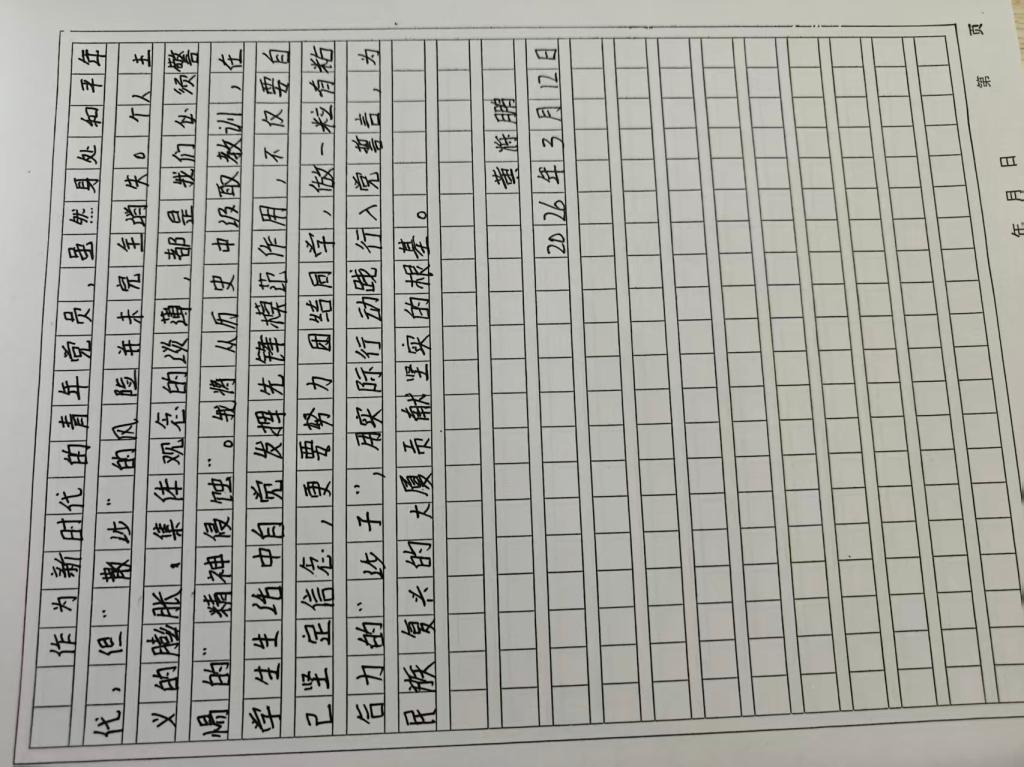 作为新时代的青年党员，虽然身处和平年
代，但“散沙”的风险并未完全消失。个人主
义的膨胀、集体观念的淡薄，都是我们必须警
惕的“精神侵蚀”。我将从历史中汲取教训，在
学生生活中自觉发挥先锋模范作用，不仅要自
己坚定信念，更要努力团结同学，做一粒有粘
合力的“沙子”，用实际行动践行入党誓言，为
民族复兴的大厦贡献坚实的根基。
黄将鹏
2026年3月12日
年 月 日
第 页